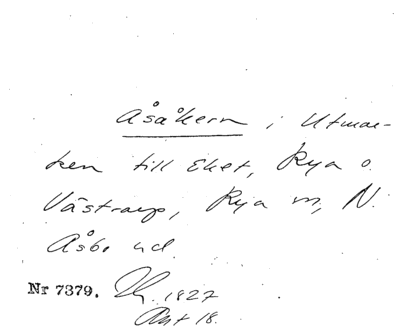 Åsåkern i Utmar-
ken till Eket, Rya o.
Västraup, Rya m, N.
Åsbo hd.
Nr 7379. 1827
Akt 18.